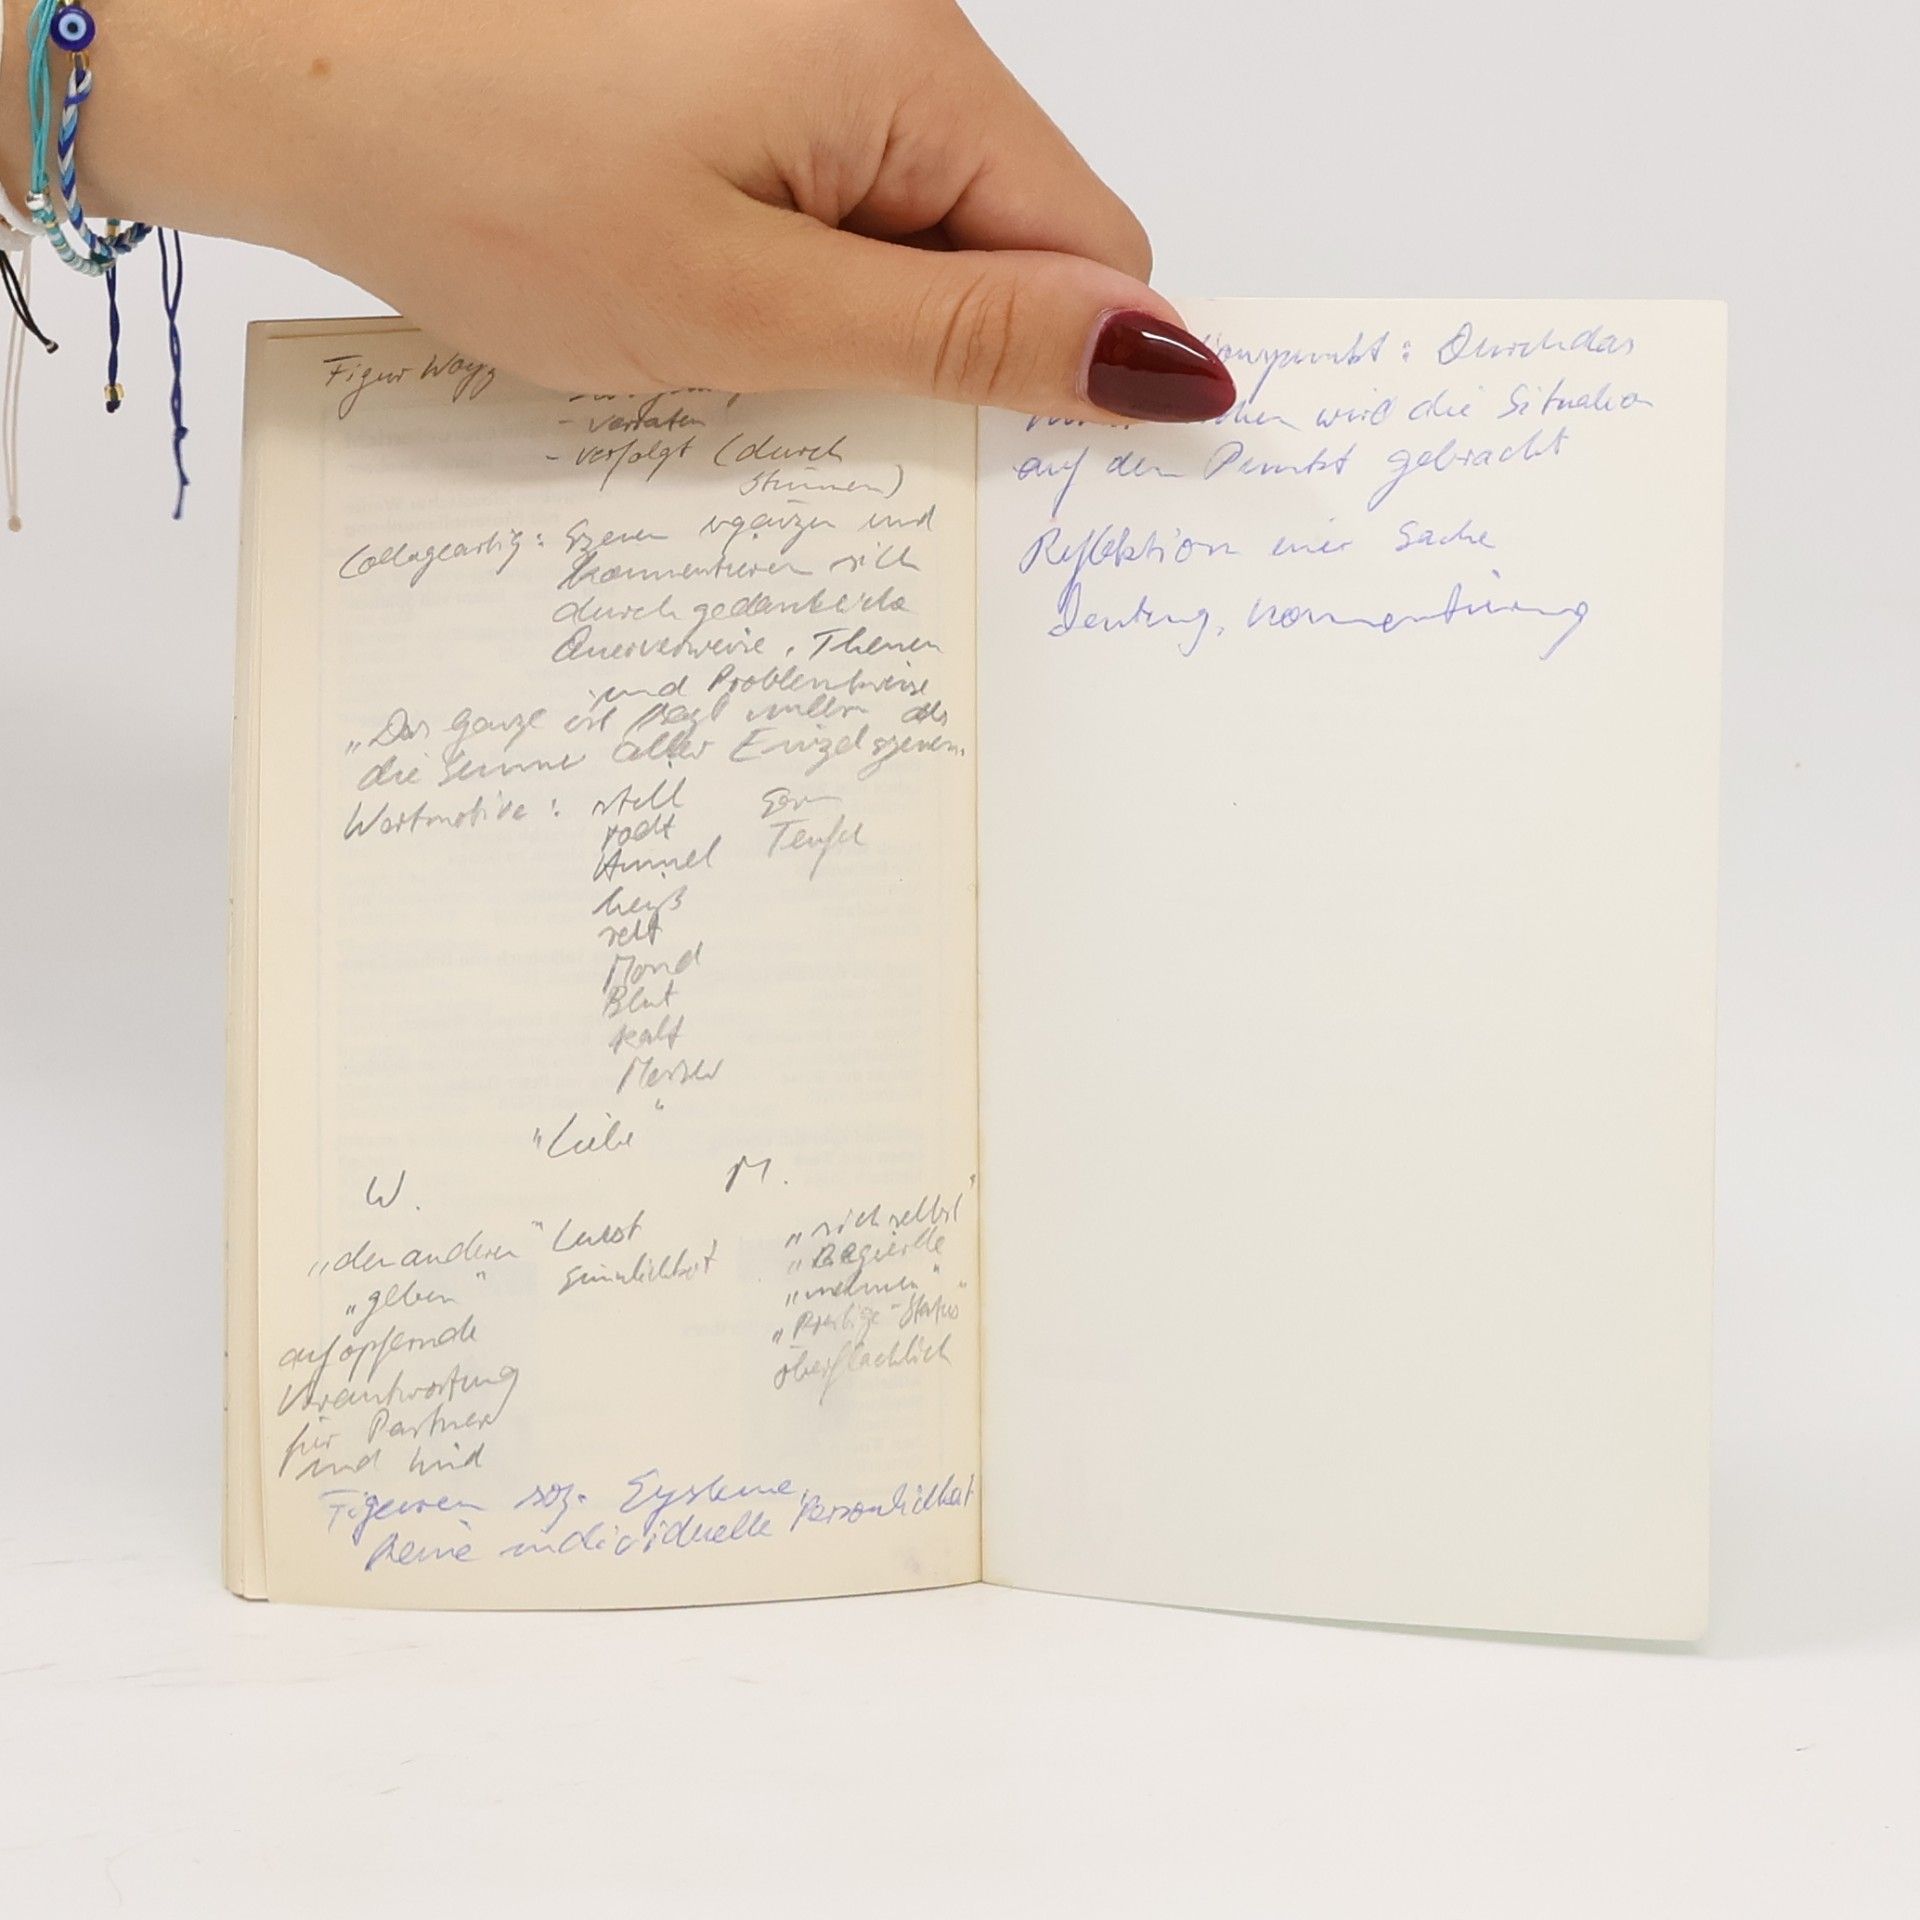 Figur Woyz
- verraten
- verfolgt (durch
Stimmen)
Collageartig: Szenen ergänzen und
kommentieren sich
durch gedankliche
Querverweise, Themen
und Problemkreise
„Das ganze ist mehr als
die Summe aller Einzelszenen.
Wortmotive: still
todt Teufel
Himmel
heiß
Mond
Blut
kalt
Messer
"Liebe"
W. M.
„den anderen" Lust „sich selbst"
„geben" Sinnlichkeit „Begierde
„nehmen"
aufopfernde „Prestige-Status"
Verantwortung oberflächlich
für Partner
und Kind
Figuren soz. Systeme,
keine individuelle Persönlichkeit
punkt: Durch das
wird die Situation
auf den Punkt gebracht
Reflektion einer Sache
Deutung, Kommentierung